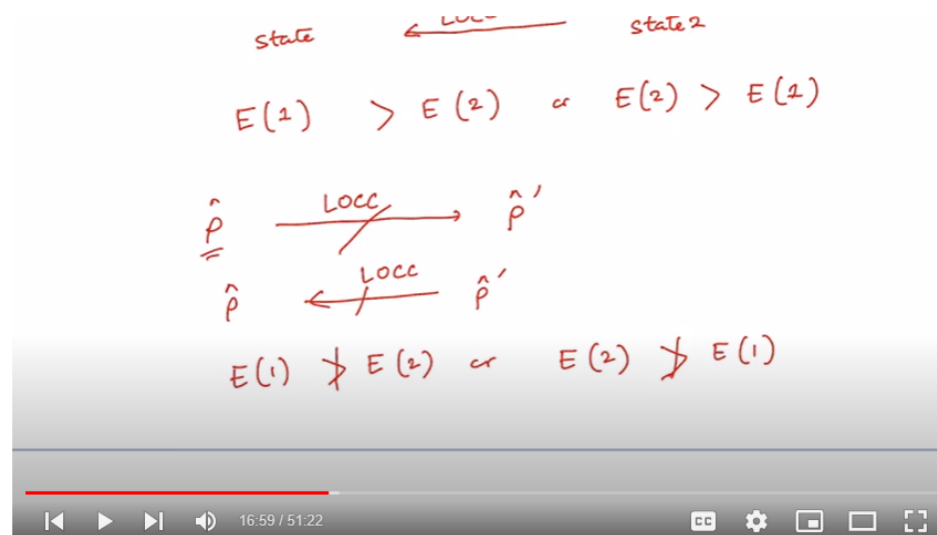 state state 2
E(1) > E(2) or E(2) > E(1)
ρ̂ LOCC ρ̂′
ρ̂ LOCC ρ̂′
E(1) ≯ E(2) or E(2) ≯ E(1)
16:59 / 51:22
CC